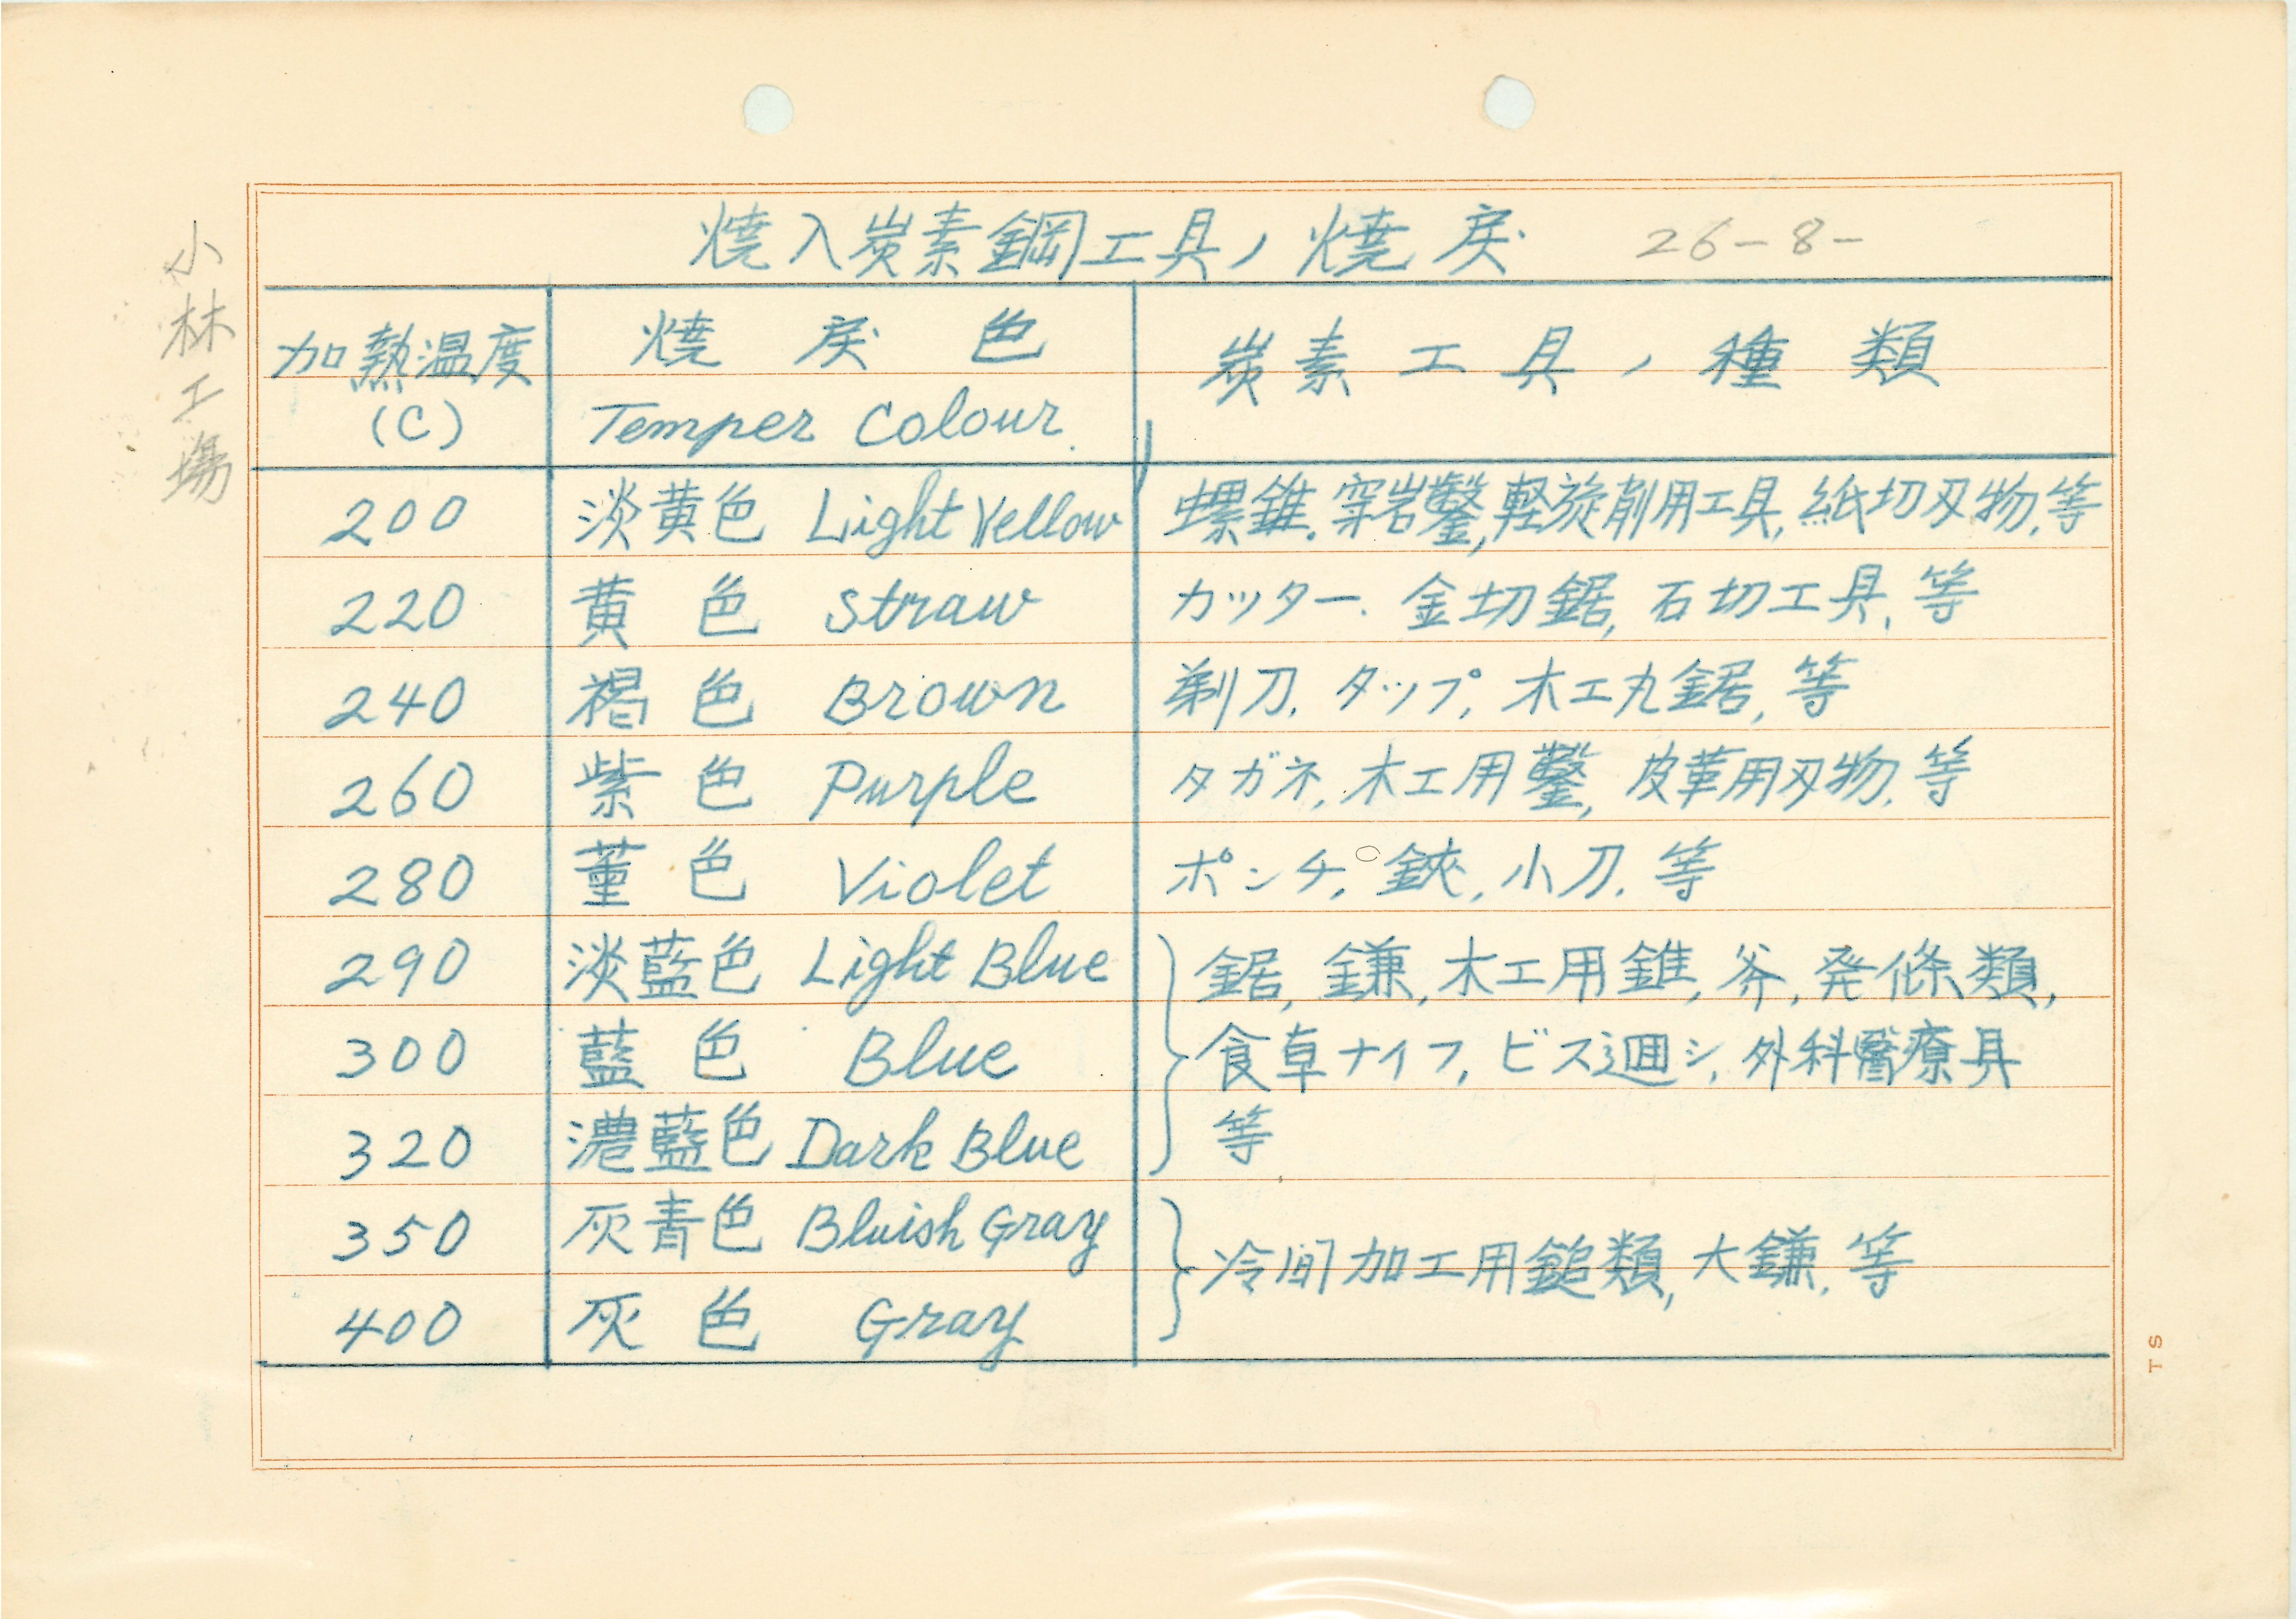 焼入炭素鋼工具ノ焼戻 26-8-
小林工場
加熱温度 焼戻色 炭素工具ノ種類
(C) Temper Colour
200 淡黄色 Light Yellow 螺錐.穿岩鑿,軽旋削用工具,紙切刃物,等
220 黄色 Straw カッター.金切鋸,石切工具,等
240 褐色 Brown 剃刀,タップ,木工丸鋸,等
260 紫色 Purple タガネ,木工用鑿,皮革用刃物,等
280 菫色 Violet ポンチ,鋏,小刀,等
290 淡藍色 Light Blue 鋸,鎌,木工用錐,斧,発條類,
300 藍色 Blue 食卓ナイフ,ビス廻シ,外科醫療具
320 濃藍色 Dark Blue 等
350 灰青色 Bluish Gray
冷間加工用鎚類,大鎌,等
400 灰色 Gray
TS